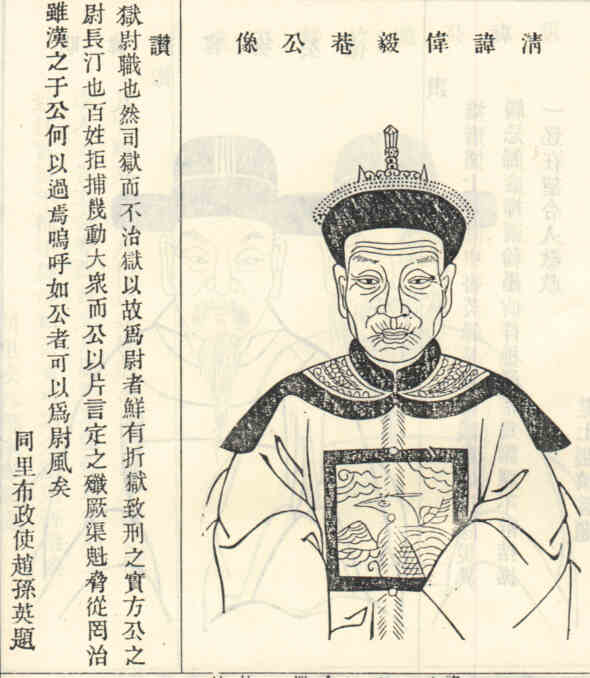 淸諱偉毅巷公像
讚
獄尉職也然司獄而不治獄以故爲尉者鮮有折獄致刑之實方公之
尉長汀也百姓拒捕幾動大衆而公以片言定之殲厥渠魁脅從罔治
雖漢之于公何以過焉嗚呼如公者可以爲尉風矣
同里布政使趙孫英題